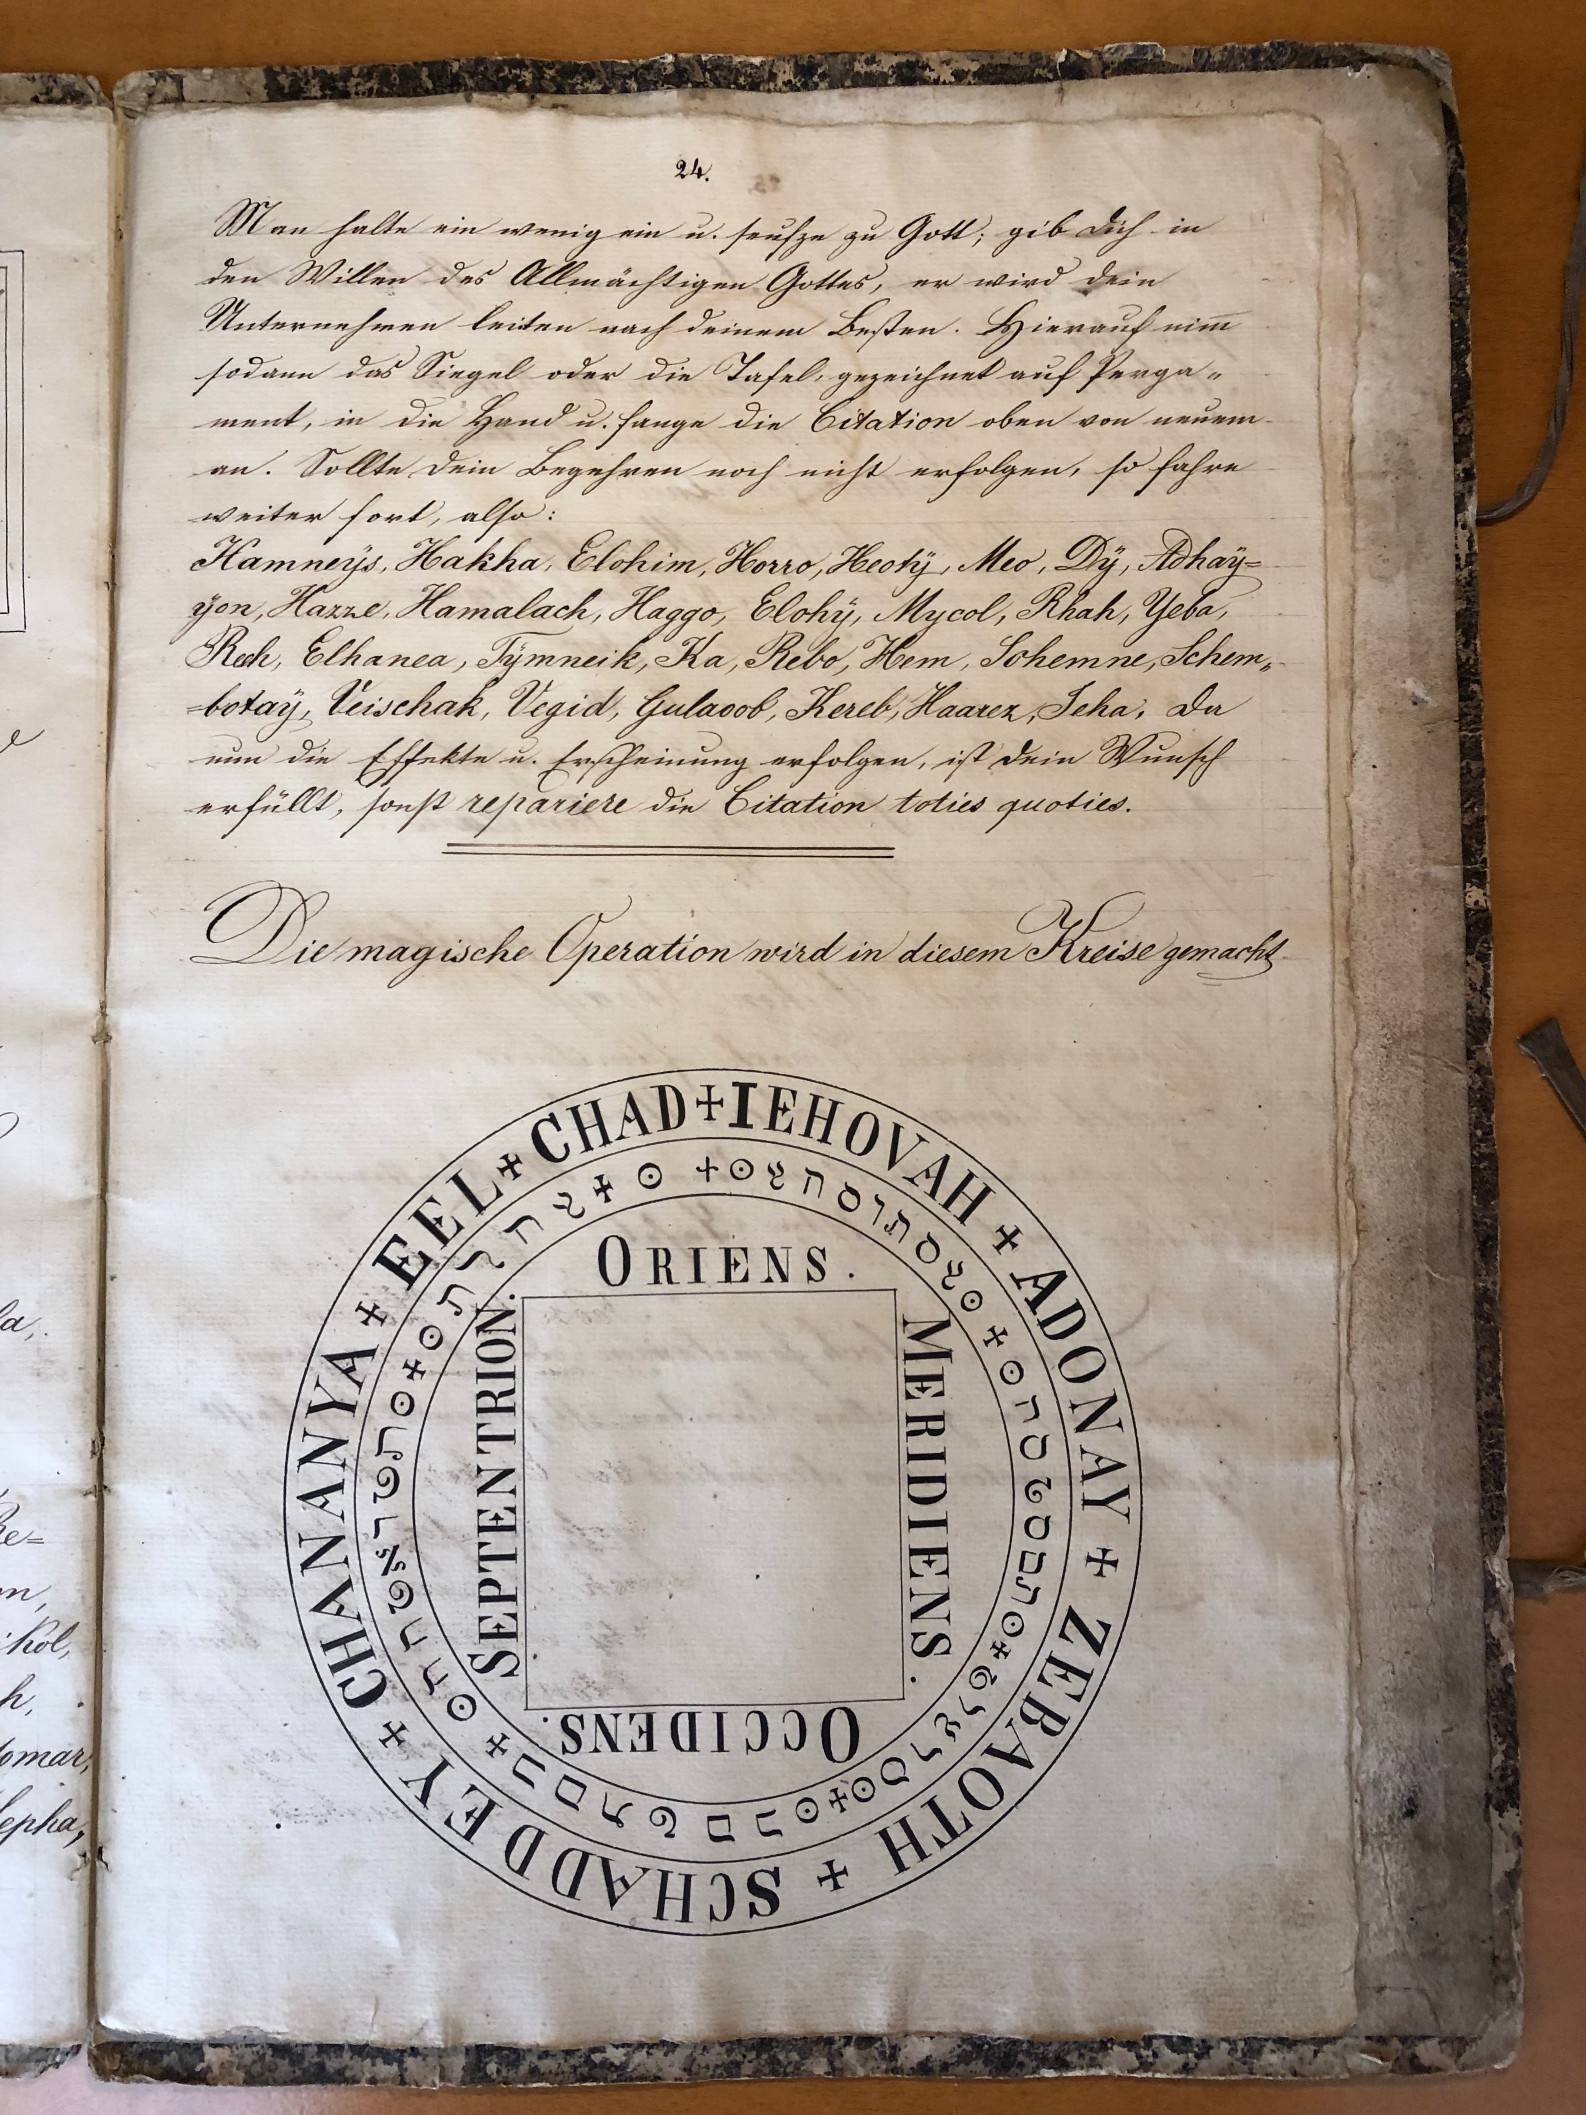 24.
Man halte ein wenig ein u. seufze zu Gott; gib dich in
den Willen des Allmächtigen Gottes, er wird dein
Unternehmen leiten nach deinem Besten. Hierauf nim̅
sodann das Siegel oder die Tafel, gezeichnet auf Perga„
ment, in die Hand u. fange die Citation oben von neuem
an. Sollte dein Begehren noch nicht erfolgen, so fahre
weiter fort, also:
Hamneÿs, Hakha, Elohim, Horro, Heotÿ, Meo, Dÿ, Adhaÿ=
ÿon, Hazze, Hamalach, Haggo, Elohÿ, Mycol, Rhah, Yeba,
Rech, Elhanea, Tÿmneik, Ka, Rebo, Hem, Sohemne, Schem„
=botaÿ, Veischak, Vegid, Gulaoob, Kereb, Haarez, Jeha, da
nun die Effekte u. Erscheinung erfolgen, ist dein Wunsch
erfüllt, sonst repariere die Citation toties quoties.
Die magische Operation wird in diesem Kreise gemacht
IEHOVAH + ADONAY + ZEBAOTH + SCHADDEY + CHANANYA + EEL + CHAD +
ORIENS.
MERIDIENS.
OCCIDENS.
SEPTENTRION.
la,
Re=
m,
Kol,
h,
domar,
lepha,